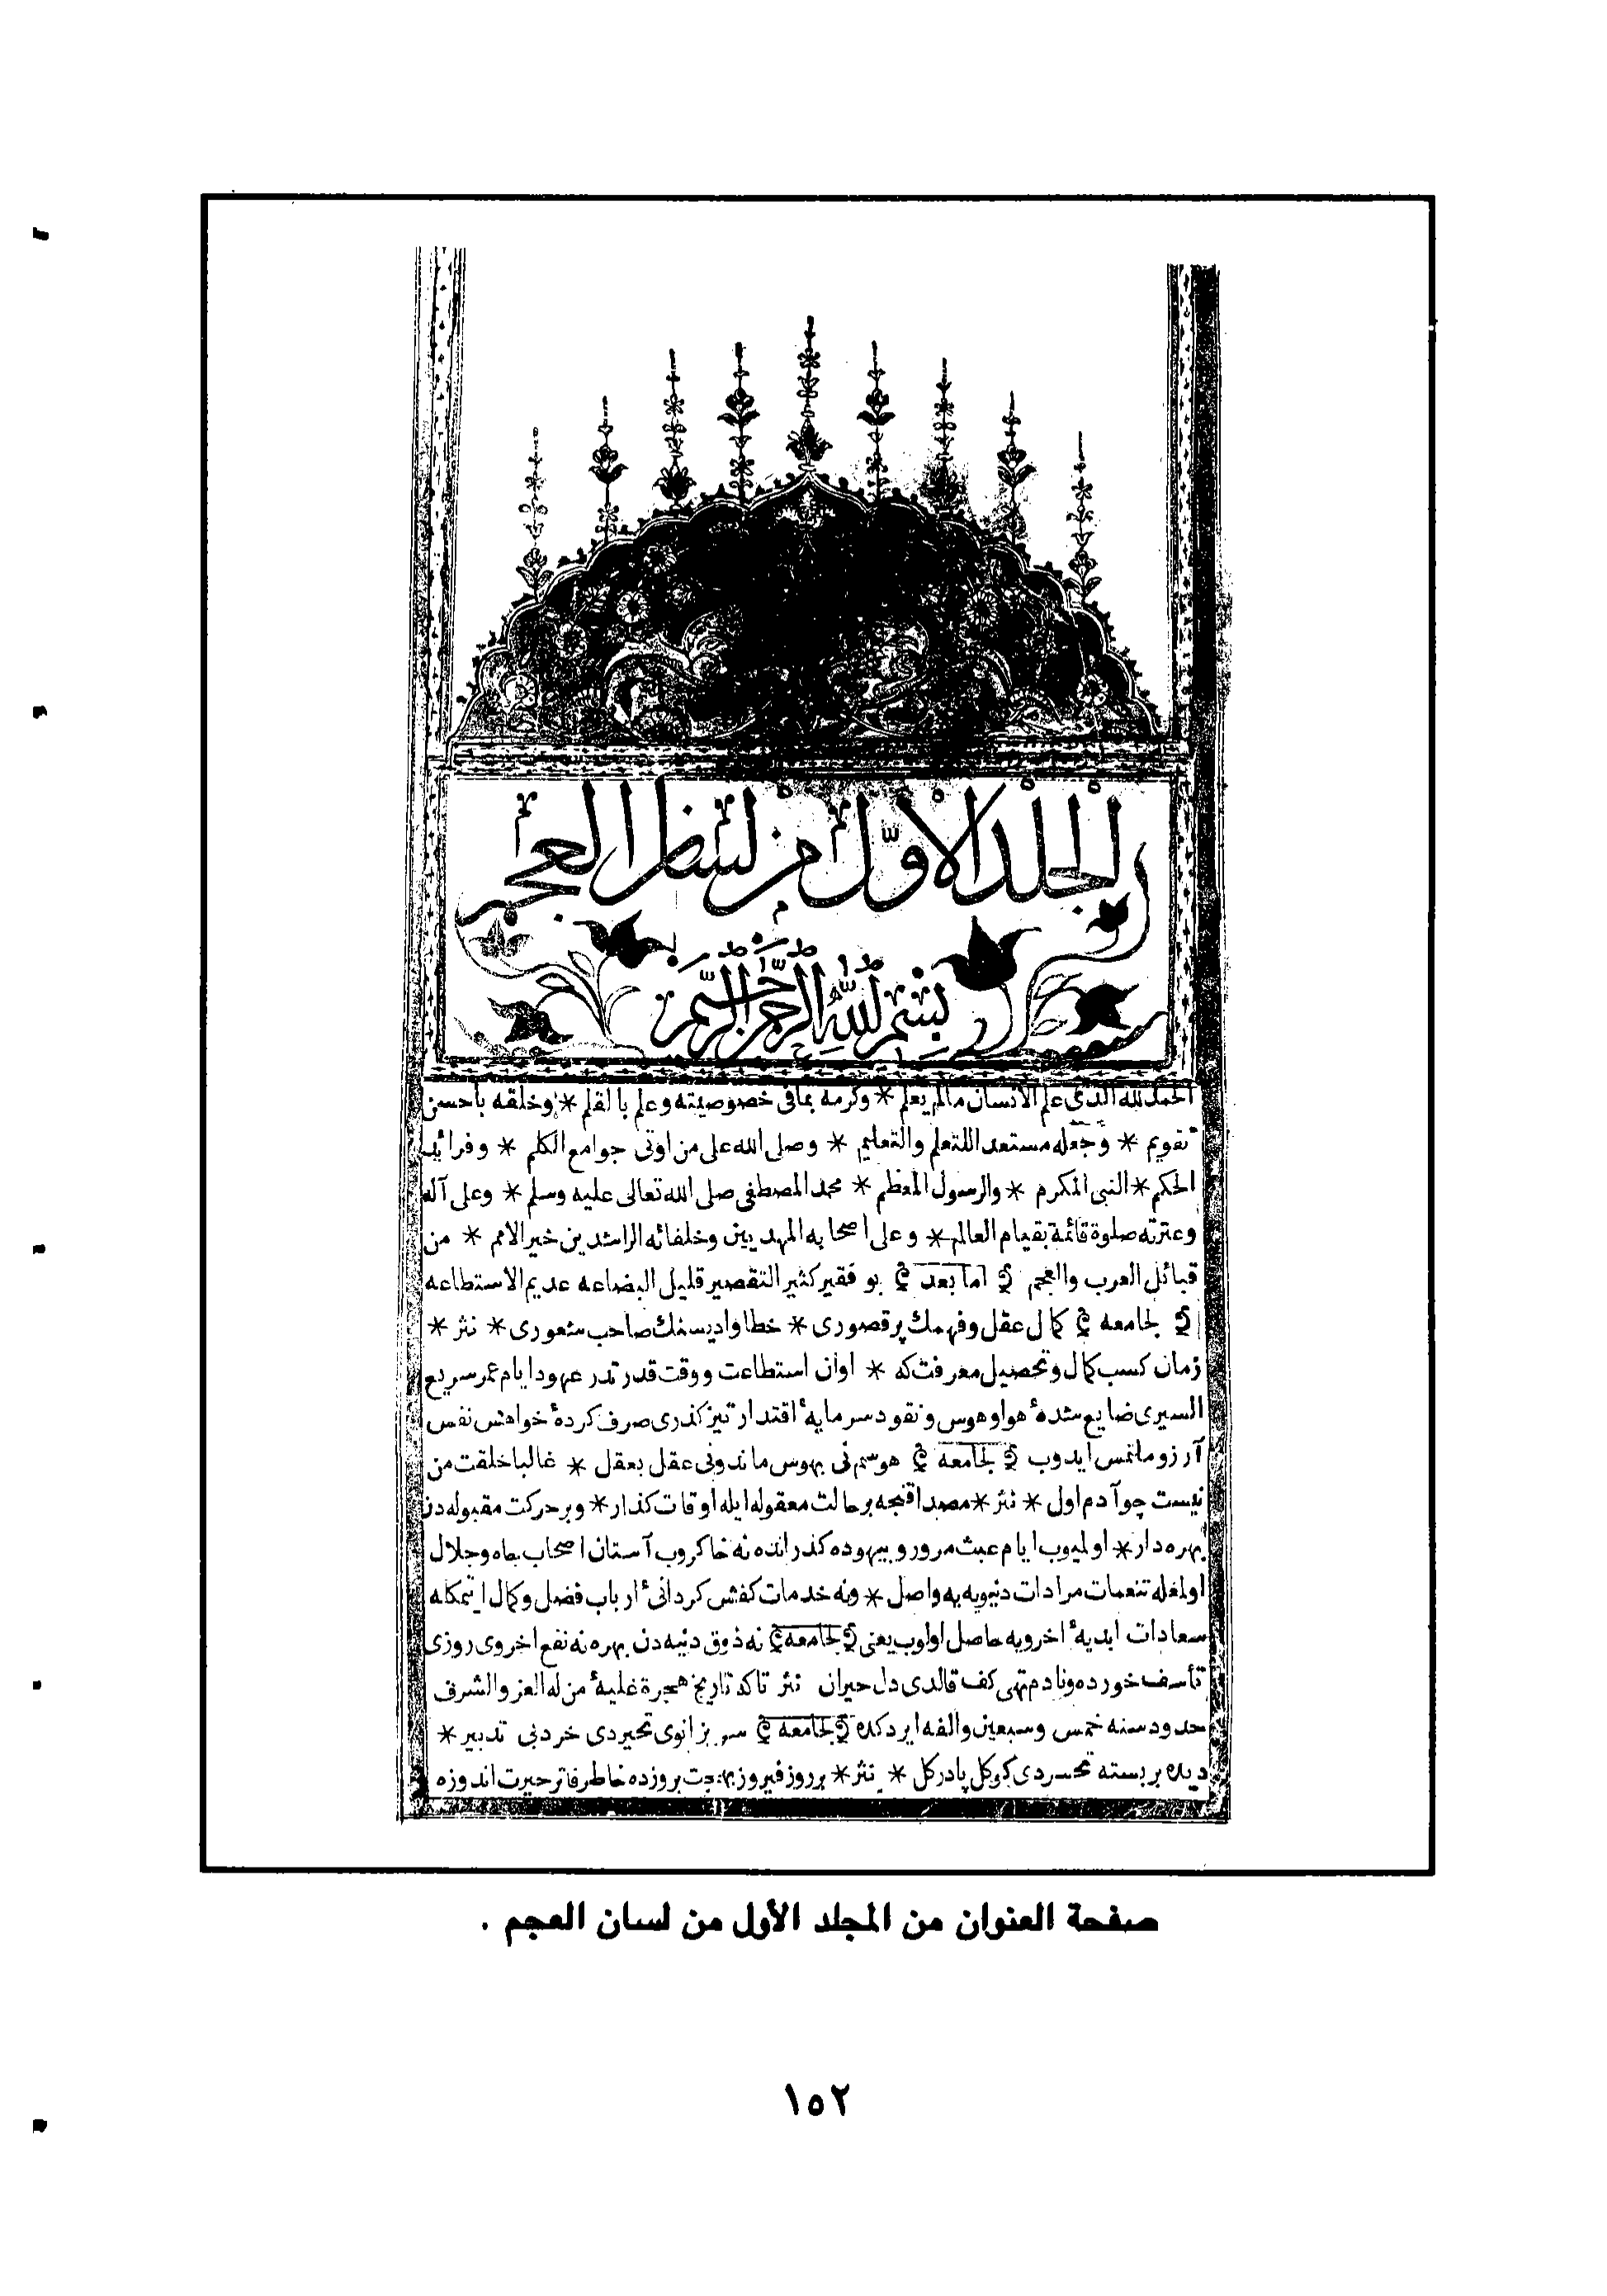 المجلد الأول من لسان العجم
بسم الله الرحمن الرحيم
الحمد لله الذى علم الانسان مالم يعلم * وكرمه بمافى خصوصيته وعلم بالقلم * وخلقه باحسن
تقويم * وجعله مستعد اللتعلم والتعليم * وصلى الله على من اوتى جوامع الكلم * وفرائد
الحكم * النبى المكرم * والرسول المعظم * محمد المصطفى صلى الله تعالى عليه وسلم * وعلى آله
وعترته صلوة قائمة بقيام العالم * وعلى اصحابه المهديين وخلفائه الراشدين خير الامم * من
قبائل العرب والعجم اما بعد بو فقير كثير التقصير قليل البضاعه عديم الاستطاعه
لجامعه كمال عقل وفهمك پر قصورى * خطا واديسنك صاحب شعورى * نثر *
زمان كسب كمال وتحصيل معرفت كه * اوان استطاعت ووقت قدرتدر عهود ايام عمر سريع
السيرى ضايع شدۀ هوا وهوس ونقود سرمايۀ اقتدار تيز كذرى صرف كردۀ خواهش نفس
آرزو ملتمس ايدوب لجامعه هوسم نى بهوس ماند ونى عقل بعقل * غالبا خلقت من
نيست چو آدم اول * نثر * بر حالت معقوله ايله اوقات كذار * وبر حركت مقبوله دن
بهره دار * اولميوب ايام عبث مرور وبيهوده كذرانده نه خاكروب آستان اصحاب جاه وجلال
اولمغله تنعمات مرادات دنيويه يه واصل * ونه خدمات كفش كردانئ ارباب فضل وكمال ايتمكله
سعادات ابديۀ اخرويه حاصل اولوب يعنى لجامعه نه ذوق دنيه دن بهره نه نفع اخروى روزى
تأسف خورده ونادم تهى كف قالدى دل حيران نثر تاكه تاريخ هجرة عليۀ من له العز والشرف
حدود سنه خمس وسبعين والفه ايردكده لجامعه سر بزانوى تحيردى خرد بى تدبير *
ديده بر بسته تحسردى كوكل پا در كل * نثر * بر روز فيروز بهجت بروزده خاطر فاتر حيرت اندوزه
صفحة العنوان من المجلد الأول من لسان العجم .
١٥٢